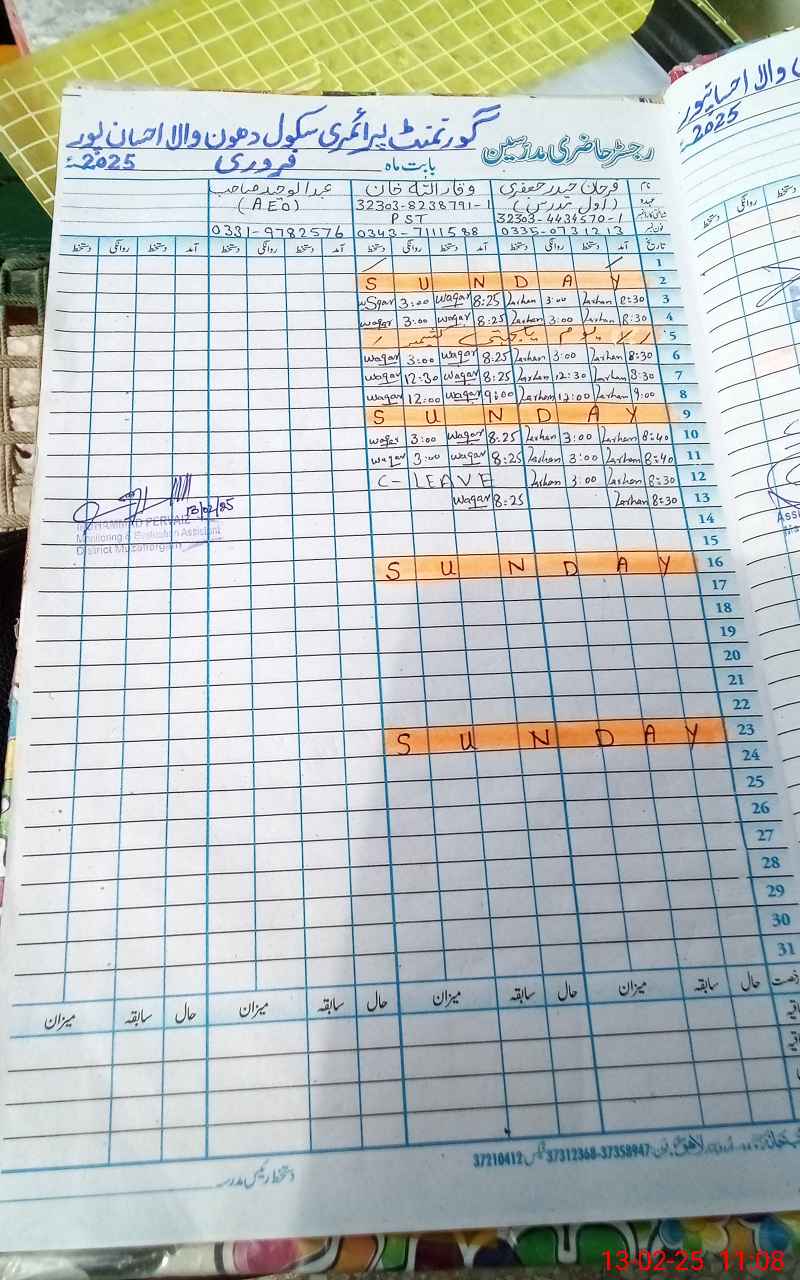 گورنمنٹ پرائمری سکول دھون والا احسان پور
رجسٹر حاضری مدرسین بابت ماہ فروری 2025ء
نام فرحان حیدر جعفری وقار اللہ خان عبدالوحید صاحب
عہدہ (اول مدرس) (AEO)
32303-4434570-1 32303-8238791-1
PST
فون نمبر 0335-0731213 0343-7111588 0331-9782576
تاریخ آمد دستخط روانگی دستخط آمد دستخط روانگی دستخط آمد دستخط روانگی دستخط آمد دستخط روانگی دستخط
1
2 SUNDAY
3 8:30 Farhan 3:00 Farhan 8:25 Waqar 3:00 Waqar
4 8:30 Farhan 3:00 Farhan 8:25 Waqar 3:00 Waqar
5 یوم یکجہتی کشمیر
6 8:30 Farhan 3:00 Farhan 8:25 Waqar 3:00 Waqar
7 8:30 Farhan 12:30 Farhan 8:25 Waqar 12:30 Waqar
8 9:00 Farhan 12:00 Farhan 9:00 Waqar 12:00 Waqar
9 SUNDAY
10 8:40 Farhan 3:00 Farhan 8:25 Waqar 3:00 Waqar
11 8:40 Farhan 3:00 Farhan 8:25 Waqar 3:00 Waqar
12 8:30 Farhan 3:00 Farhan C-LEAVE
13 8:30 Farhan 8:25 Waqar
13/02/25
MUHAMMAD PERVAIZ
Monitoring & Evaluation Assistant
District Muzaffargarh
14
15
16 SUNDAY
17
18
19
20
21
22
23 SUNDAY
24
25
26
27
28
29
30
31
رخصت حال سابقہ میزان حال سابقہ میزان حال سابقہ میزان حال سابقہ میزان
لاہور فون: 37358947-37312368 فیکس 37210412
دستخط رئیس مدرسہ
والا احسانپور
2025
دستخط روانگی دستخط
13-02-25 11:08